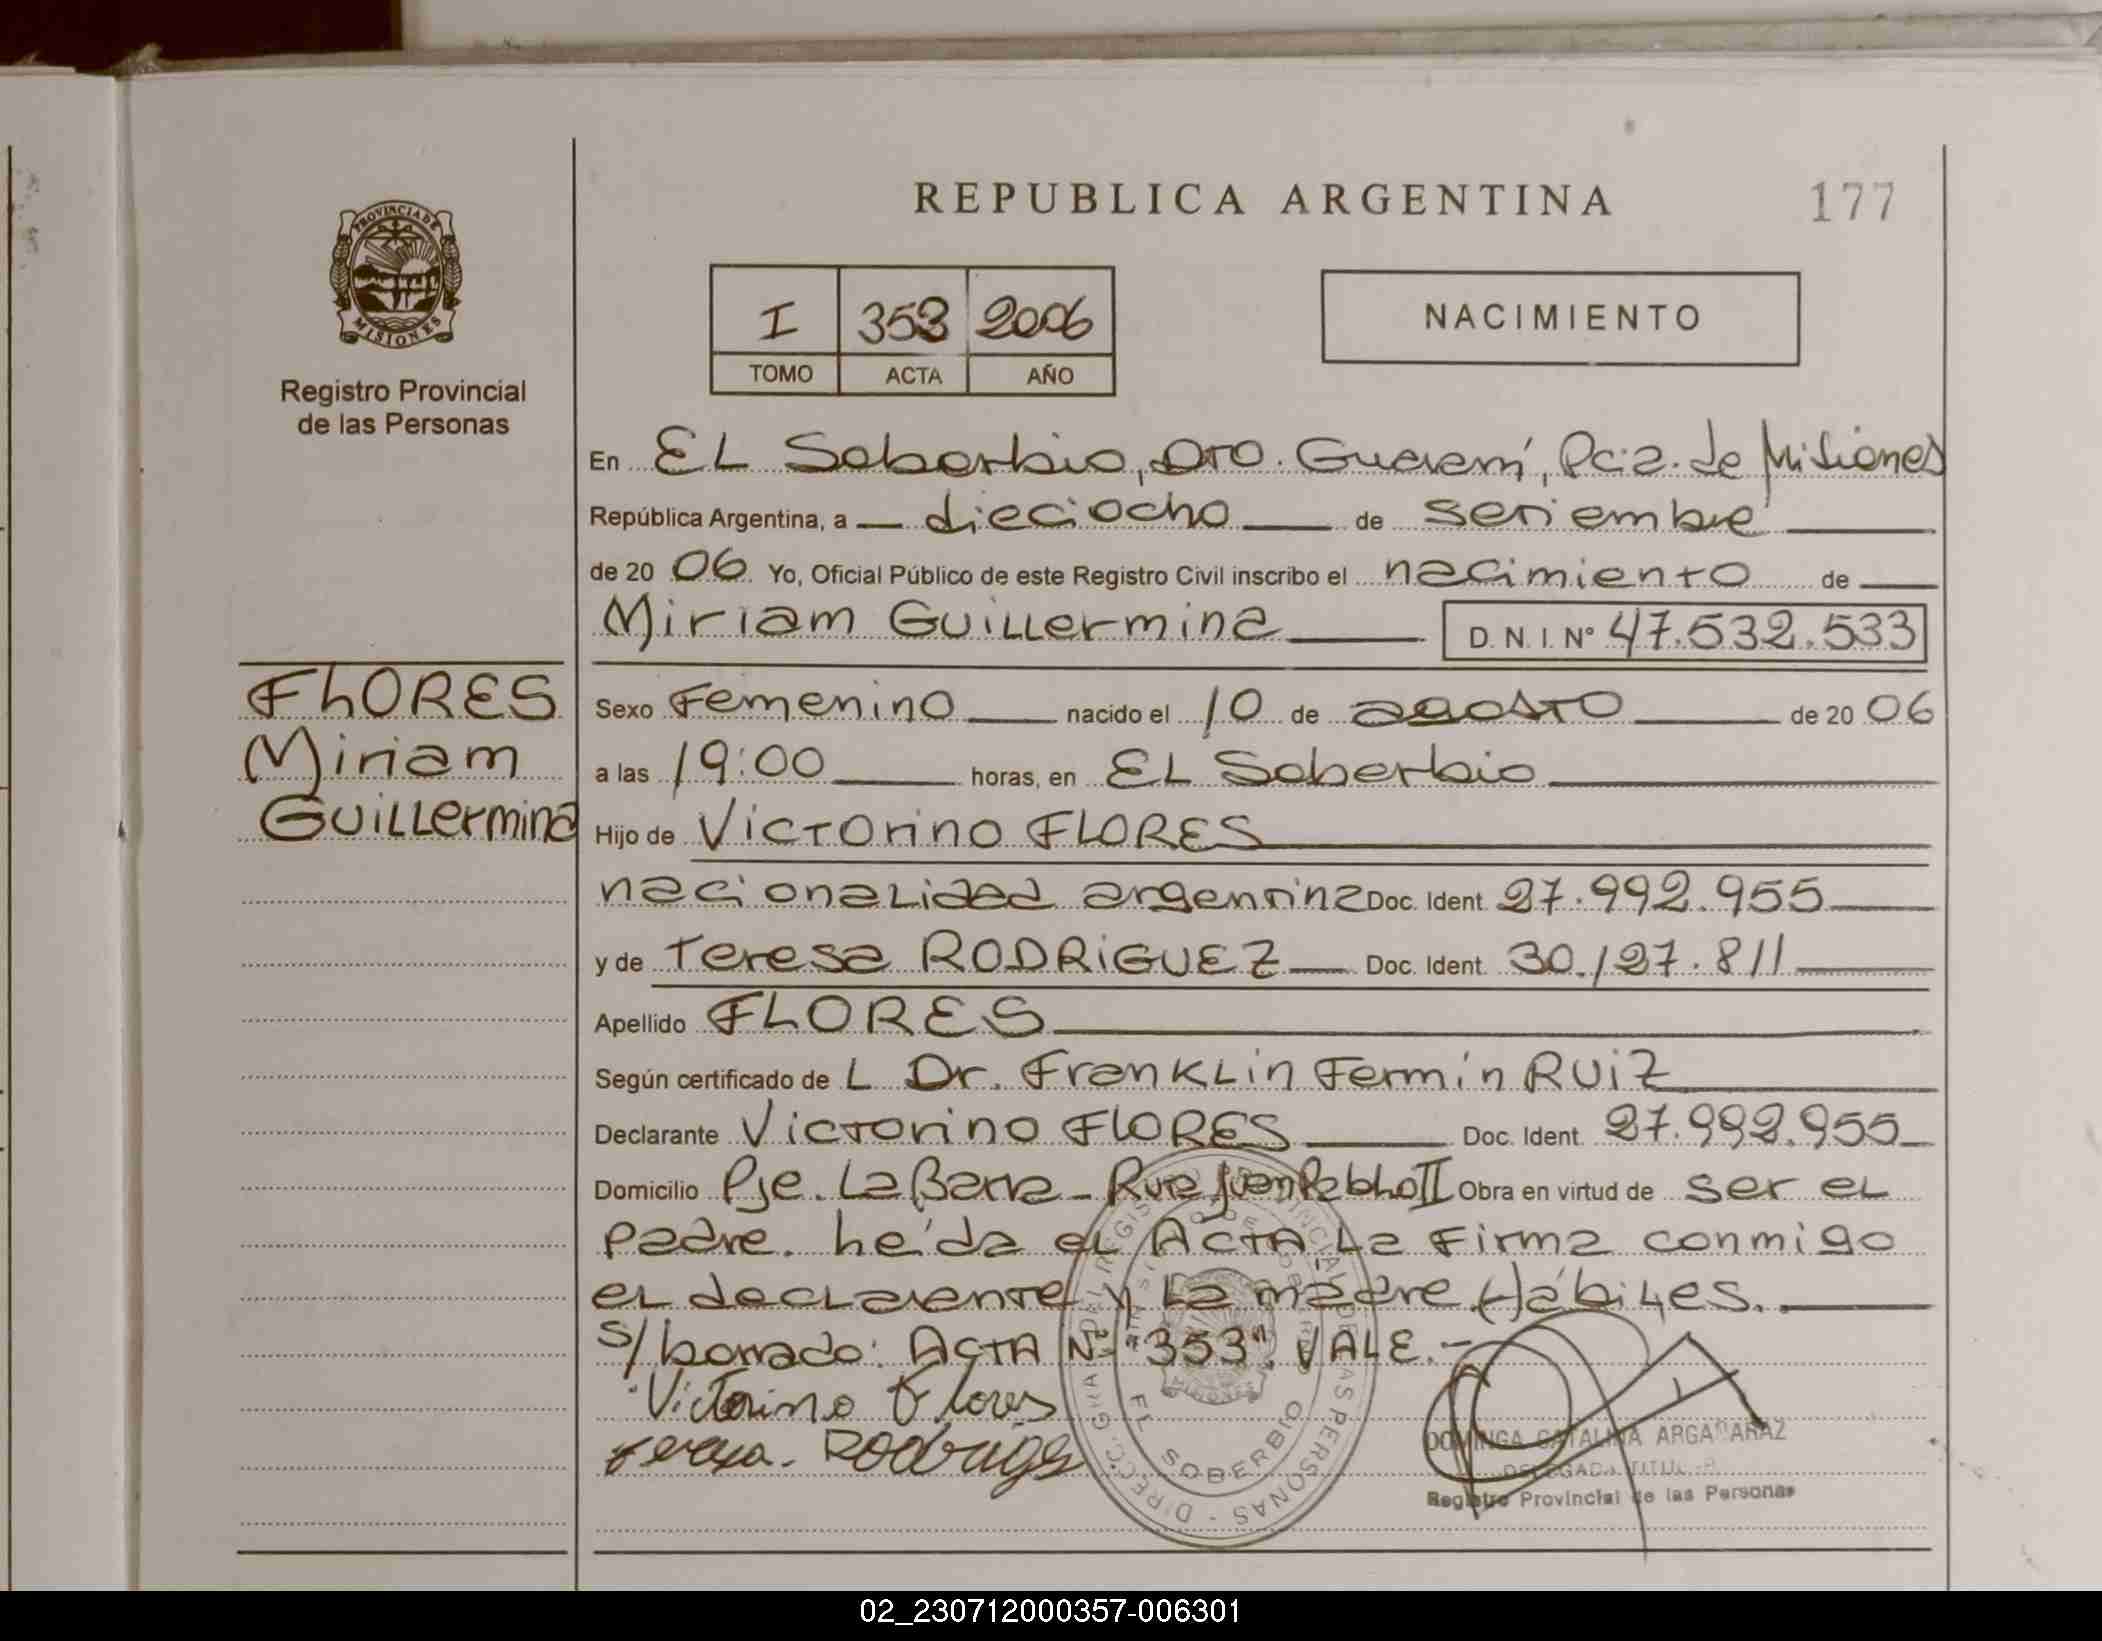 REPUBLICA ARGENTINA
177
PROVINCIA DE
MISIONES
Registro Provincial
de las Personas
I 353 2006
TOMO ACTA AÑO
NACIMIENTO
En EL Soberbio, DTO. Guaraní, Pcia. de Misiones
República Argentina, a dieciocho de setiembre
de 20 06 Yo, Oficial Público de este Registro Civil inscribo el nacimiento de
Miriam Guillermina D. N. I. N° 47.532.533
FLORES
Miriam
Guillermina
Sexo Femenino nacido el 10 de agosto de 20 06
a las 19:00 horas, en EL Soberbio
Hijo de Victorino FLORES
nacionalidad argentina Doc. Ident. 27.992.955
y de Teresa RODRIGUEZ Doc. Ident. 30.127.811
Apellido FLORES
Según certificado de L Dr. Franklin Fermín RUIZ
Declarante Victorino FLORES Doc. Ident. 27.992.955
Domicilio Pje. La Barra - Ruta Juan Pablo II Obra en virtud de ser el
padre. Leída el ACTA La Firma conmigo
el declarante y La madre Hábiles.
S/borrado: ACTA Nº "353". VALE.-
Victorino Flores
teresa. Rodrigz
DIRECC. GRAL. DEL REGISTRO PROVINCIAL DE LAS PERSONAS
EL SOBERBIO
MISIONES
DOMINGA CATALINA ARGAÑARAZ
DELEGADA TITULAR
Registro Provincial de las Personas
02_230712000357-006301